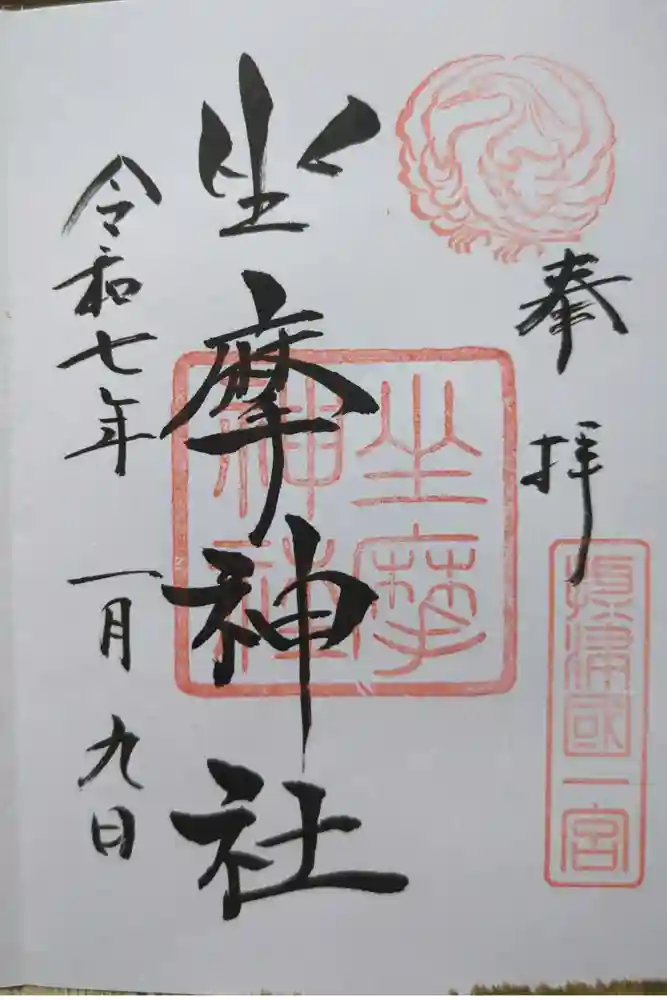 奉拝
摂津國一宮
坐摩神社
坐摩
神社
令和七年一月九日